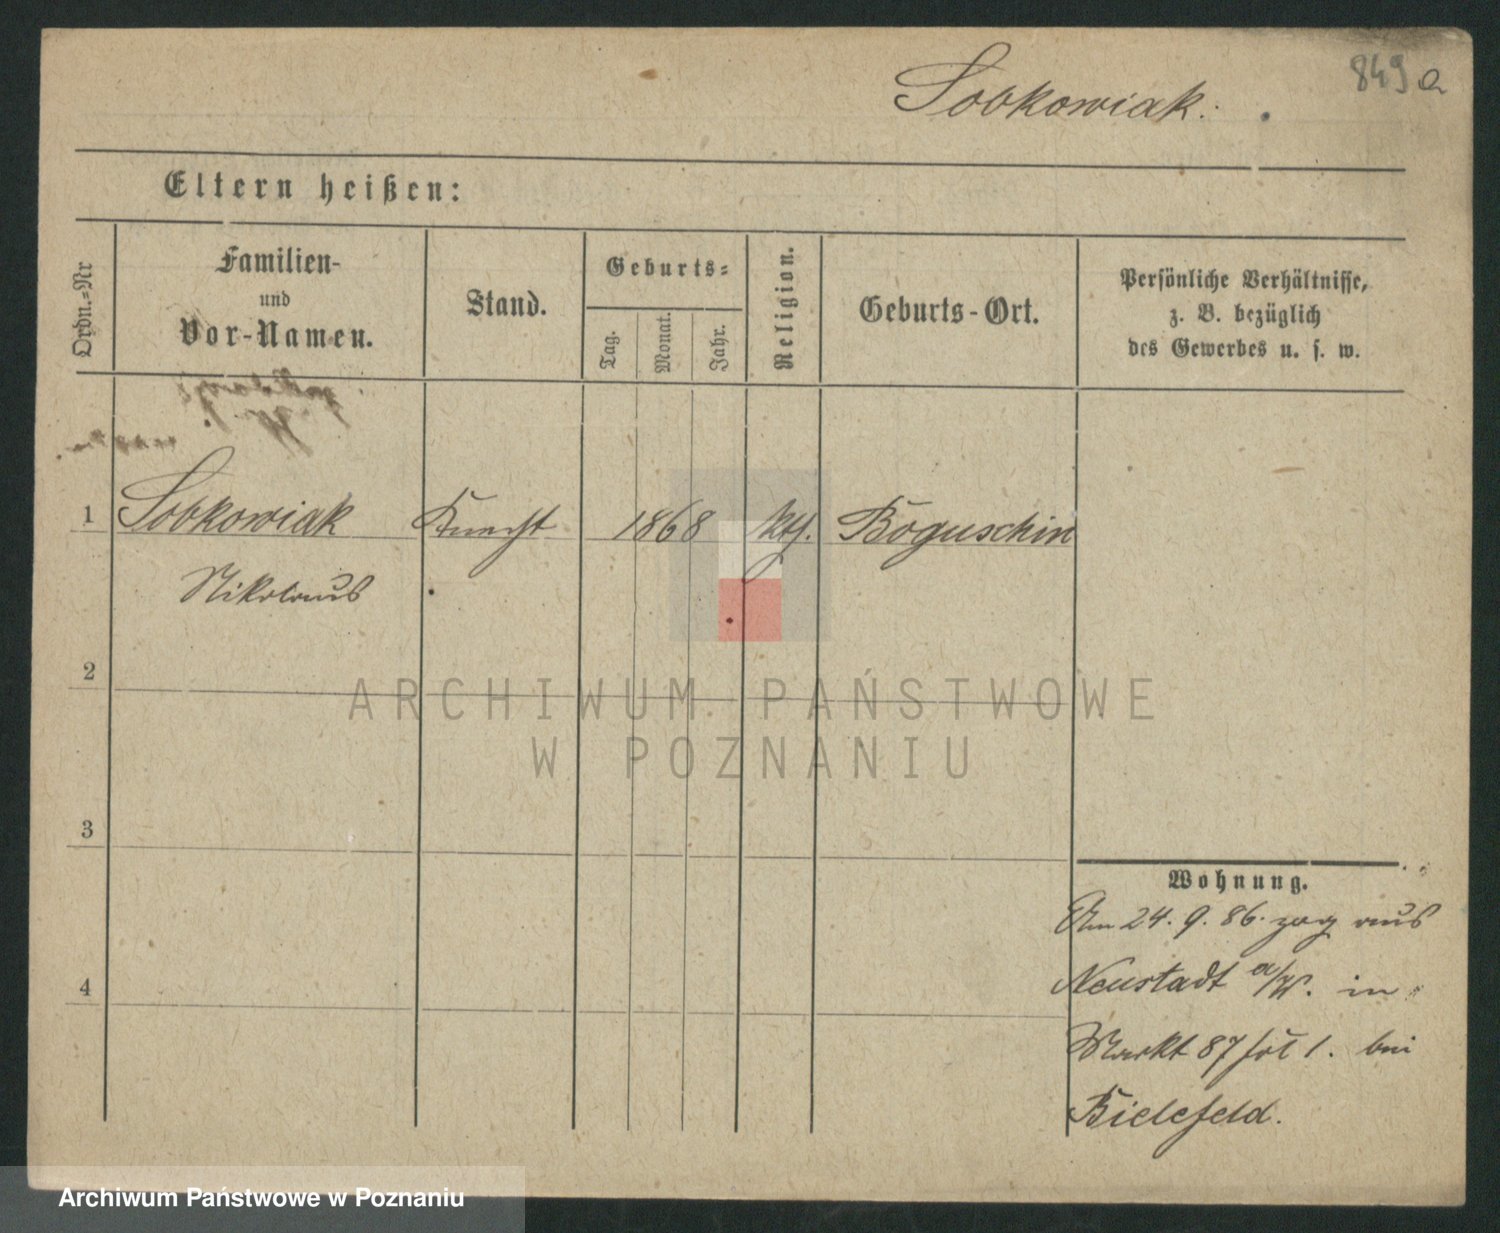 849 a
Sobkowiak.
Eltern heißen:
Ordn.=Nr
Familien-
und
Vor-Namen.
Stand.
Geburts=
Tag.
Monat.
Jahr.
Religion.
Geburts-Ort.
Persönliche Verhältnisse,
z. B. bezüglich
des Gewerbes u. s. w.
1 Sobkowiak Knecht 1868 kth. Boguschin
Nikolaus
2
3
4
Wohnung.
Am 24. 9. 86. zog aus
Neustadt a/W. in
Markt 87 bei
Bielefeld.
ARCHIWUM PAŃSTWOWE
W POZNANIU
Archiwum Państwowe w Poznaniu